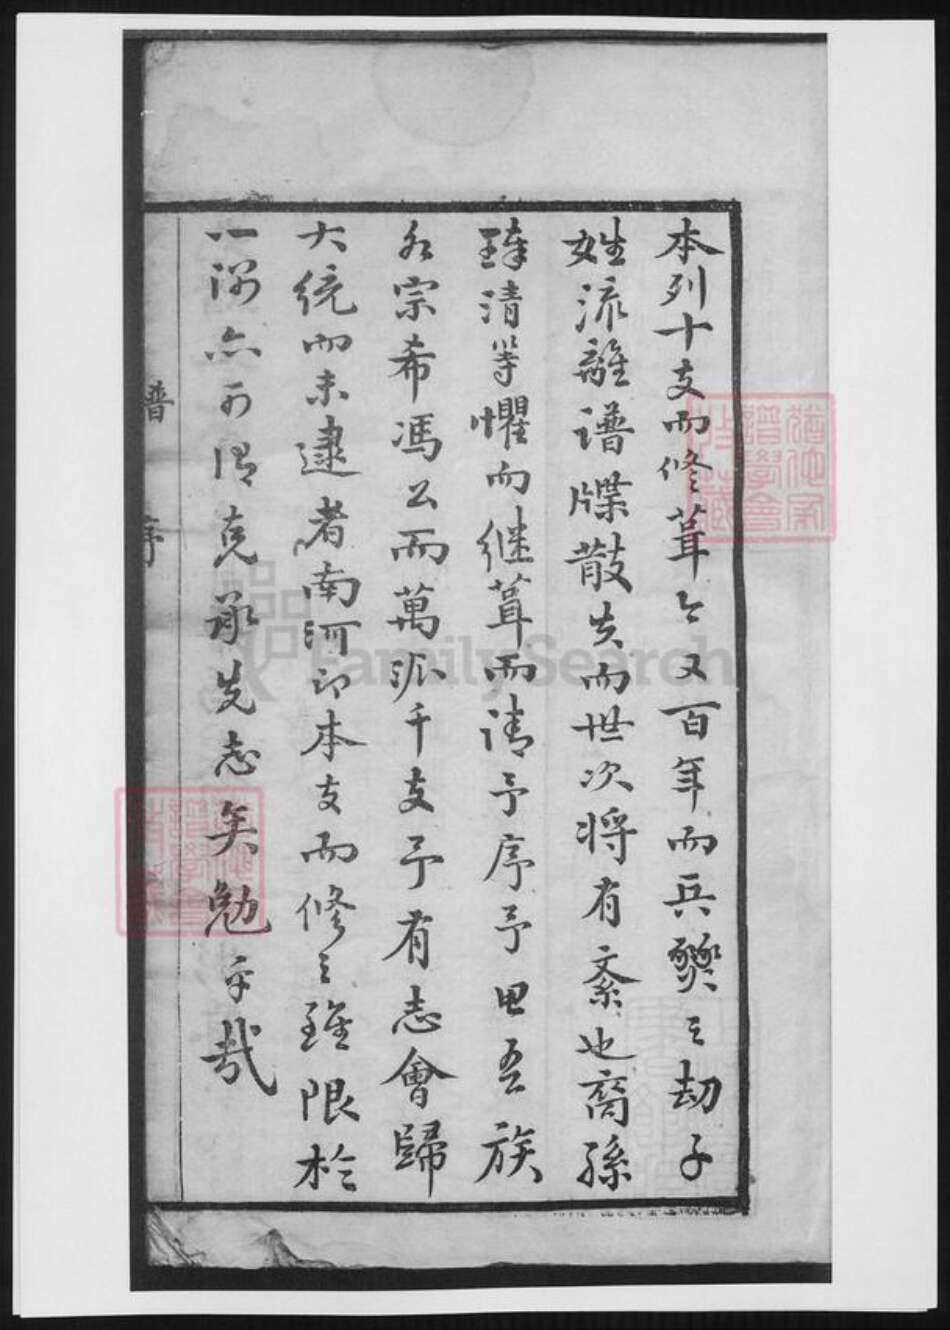 本列十支而修葺今又百年而兵燹之劫子
姓流離譜牒散失而世次將有紊也裔孫
臻清等懼而継葺而請予序予思吾族
名宗希馮公而萬派千支予有志會歸
大統而未逮者南河即本支而修之雖限於
一隅亦可謂克承先志矣勉乎哉
譜 序
FamilySearch